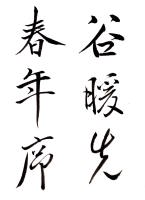 谷暖先
春年席